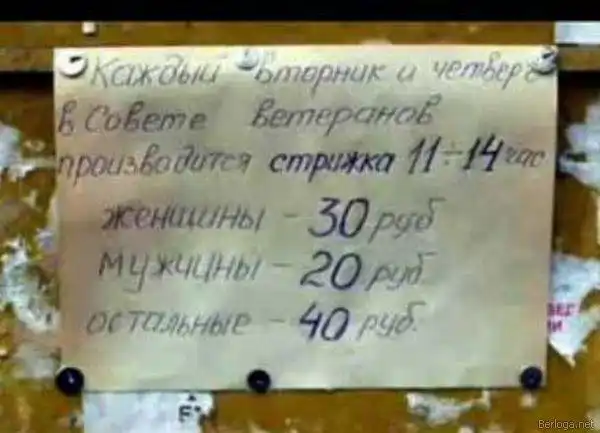 Каждый вторник и четверг
в Совете ветеранов
производится стрижка 11÷14 час
женщины – 30 руб
мужчины – 20 руб.
остальные – 40 руб.
Berloga.net